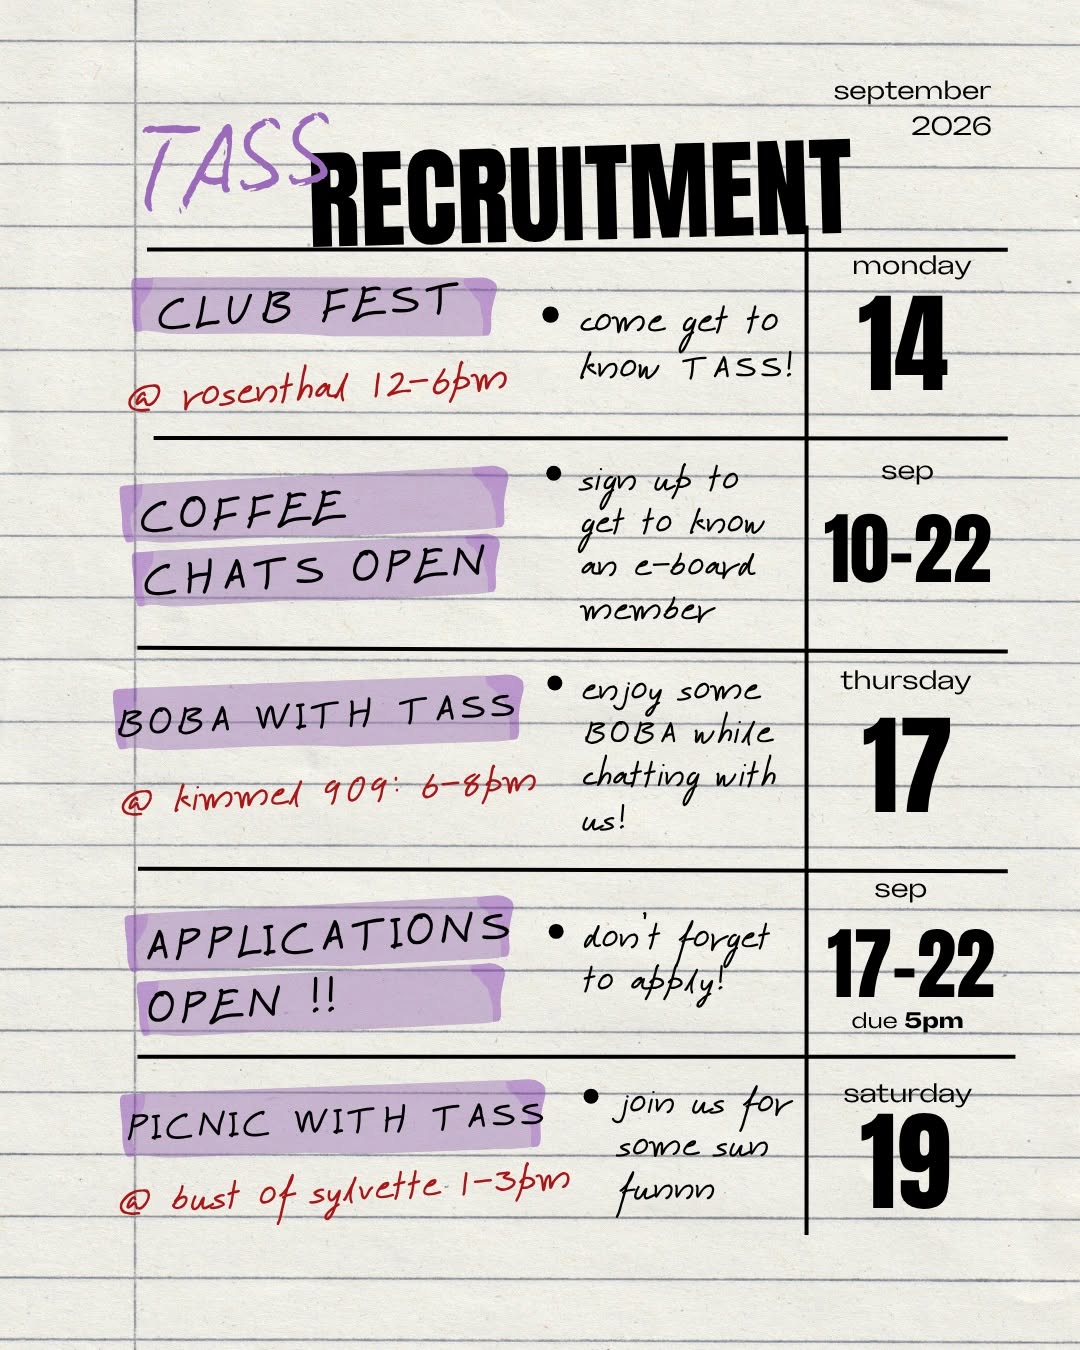 september
2026
TASS
RECRUITMENT
CLUB FEST
@ rosenthal 12-6pm
• come get to
know TASS!
monday
14
COFFEE
CHATS OPEN
• sign up to
get to know
an e-board
member
sep
10-22
BOBA WITH TASS
@ kimmel 909: 6-8pm
• enjoy some
BOBA while
chatting with
us!
thursday
17
APPLICATIONS
OPEN !!
• don't forget
to apply!
sep
17-22
due 5pm
PICNIC WITH TASS
@ bust of sylvette 1-3pm
• join us for
some sun
funnn
saturday
19